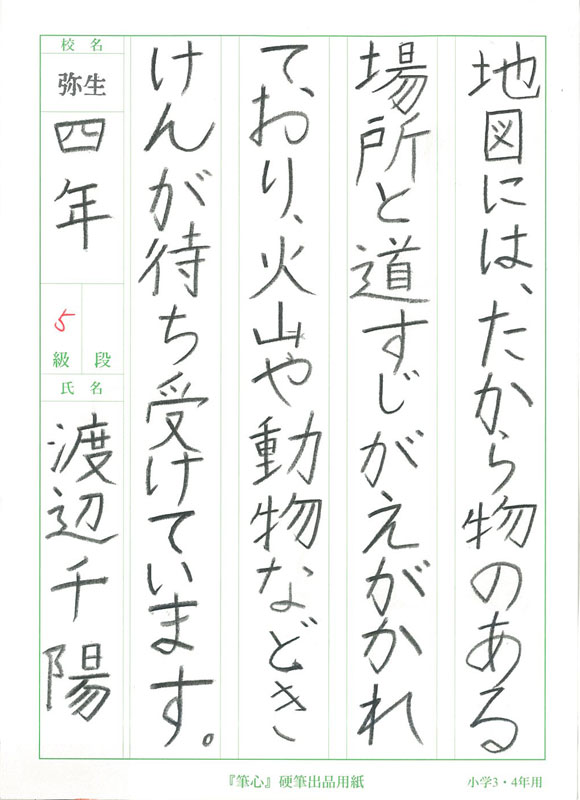 地図には、たから物のある
場所と道すじがえがかれ
て、おり、火山や動物などき
けんが待ち受けています。
校名
弥生
四年
5
級 段
氏名
渡辺千陽
『筆心』硬筆出品用紙
小学3・4年用